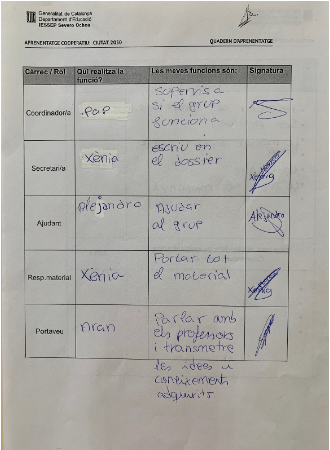 Generalitat de Catalunya
Departament d'Educació
IESSEP Severo Ochoa
APRENENTATGE COOPERATIU CIUTAT 2030
QUADERN D'APRENENTATGE
Càrrec / Rol
Qui realitza la funció?
Les meves funcions són:
Signatura
Coordinador/a
POP
Supervisa
si el grup
funciona
Secretari/a
Xènia
escriu en
el dossier
Xènia
Ajudant
Alejandro
Ajudar
al grup
Alejandro
Resp.material
Xènia
Portar tot
el material
Xènia
Portaveu
nran
Parlar amb
els professors
i transmetre
les idees i
coneixements
adquirits